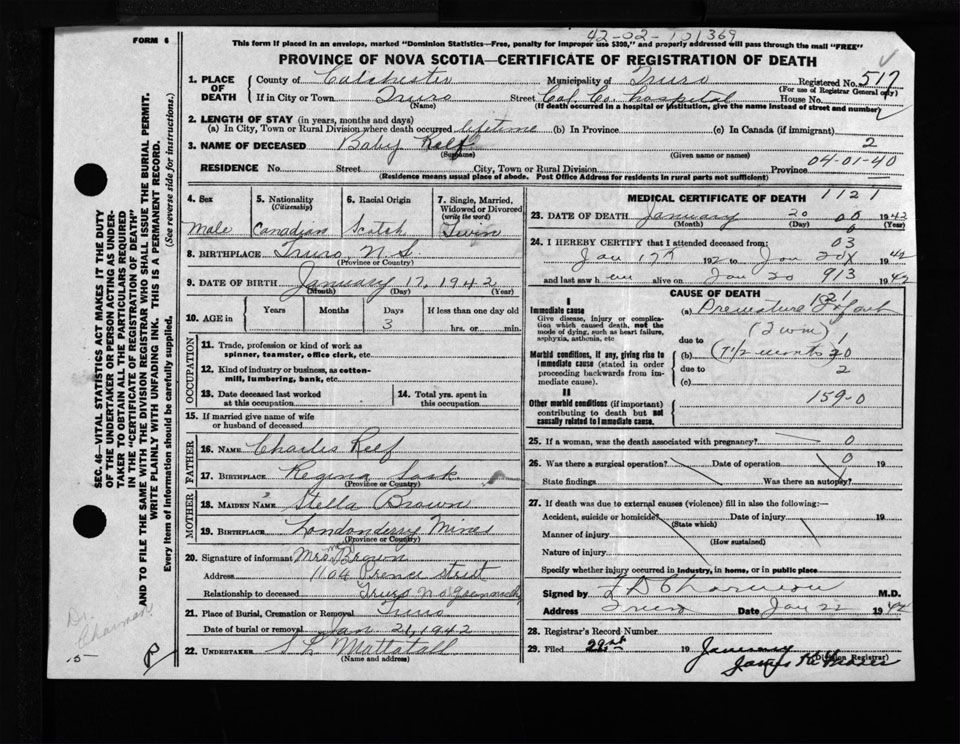 42-02-101369
FORM 6
This form if placed in an envelope, marked "Dominion Statistics—Free, penalty for improper use $300," and properly addressed will pass through the mail "FREE"
PROVINCE OF NOVA SCOTIA—CERTIFICATE OF REGISTRATION OF DEATH
1. PLACE OF DEATH
County of Colchester Municipality of Truro Registered No. 517
(For use of Registrar General only)
If in City or Town Truro Street Col. Co. hospital House No.
(Name) (If death occurred in a hospital or institution, give the name instead of street and number)
2. LENGTH OF STAY (in years, months and days)
(a) In City, Town or Rural Division where death occurred lifetime (b) In Province (c) In Canada (if immigrant)
3. NAME OF DECEASED Baby Relf 2
(Surname) (Given name or names)
04-01-40
RESIDENCE No. Street City, Town or Rural Division Province
(Residence means usual place of abode. Post Office Address for residents in rural parts not sufficient)
4. Sex
Male
5. Nationality
(Citizenship)
Canadian
6. Racial Origin
Scotch
7. Single, Married, Widowed or Divorced
(write the word)
Twin
8. BIRTHPLACE Truro N.S.
(Province or Country)
9. DATE OF BIRTH January 17, 1942
(Month) (Day) (Year)
10. AGE in
Years Months Days If less than one day old
3 hrs. or min.
OCCUPATION
11. Trade, profession or kind of work as spinner, teamster, office clerk, etc.
12. Kind of industry or business, as cotton-mill, lumbering, bank, etc.
13. Date deceased last worked at this occupation
14. Total yrs. spent in this occupation
15. If married give name of wife or husband of deceased
FATHER
16. NAME Charles Relf
17. BIRTHPLACE Regina Sask
(Province or Country)
MOTHER
18. MAIDEN NAME Stella Brown
19. BIRTHPLACE Londonderry Mines
(Province or Country)
20. Signature of informant Mrs Brown
Address Prince street
Relationship to deceased Truro N.S.
21. Place of Burial, Cremation or Removal Truro
Date of burial or removal Jan 21, 1942
22. UNDERTAKER S L Mattatall
(Name and address)
MEDICAL CERTIFICATE OF DEATH 1121
23. DATE OF DEATH January 20 00 1942
(Month) (Day) (Year)
24. I HEREBY CERTIFY that I attended deceased from: 03
Jan 17th 1942 to Jan 20th 1942
and last saw h im alive on Jan 20 913 1942
CAUSE OF DEATH
I
Immediate cause
Give disease, injury or complication which caused death, not the mode of dying, such as heart failure, asphyxia, asthenia, etc.
Morbid conditions, if any, giving rise to immediate cause (stated in order proceeding backwards from immediate cause).
II
Other morbid conditions (if important) contributing to death but not causally related to immediate cause.
(a) Premature Birth
(Twin)
due to
(b) (7 1/2 months) 20
due to 2
(c)
159-0
25. If a woman, was the death associated with pregnancy? 0
26. Was there a surgical operation? Date of operation 0 19
State findings Was there an autopsy?
27. If death was due to external causes (violence) fill in also the following:—
Accident, suicide or homicide? Date of injury 19
(State which)
Manner of injury
(How sustained)
Nature of injury
Specify whether injury occurred in industry, in home, or in public place
Signed by M.D.
Address Truro Date Jan 22 1942
28. Registrar's Record Number
29. Filed 22nd 19 January
(Division Registrar)
SEC. 46—VITAL STATISTICS ACT MAKES IT THE DUTY
OF THE UNDERTAKER OR PERSON ACTING AS UNDER-
TAKER TO OBTAIN ALL THE PARTICULARS REQUIRED
IN THE "CERTIFICATE OF REGISTRATION OF DEATH"
AND TO FILE THE SAME WITH THE DIVISION REGISTRAR WHO SHALL ISSUE THE BURIAL PERMIT.
WRITE PLAINLY WITH UNFADING INK. THIS IS A PERMANENT RECORD.
Every item of information should be carefully supplied. (See reverse side for instructions.)